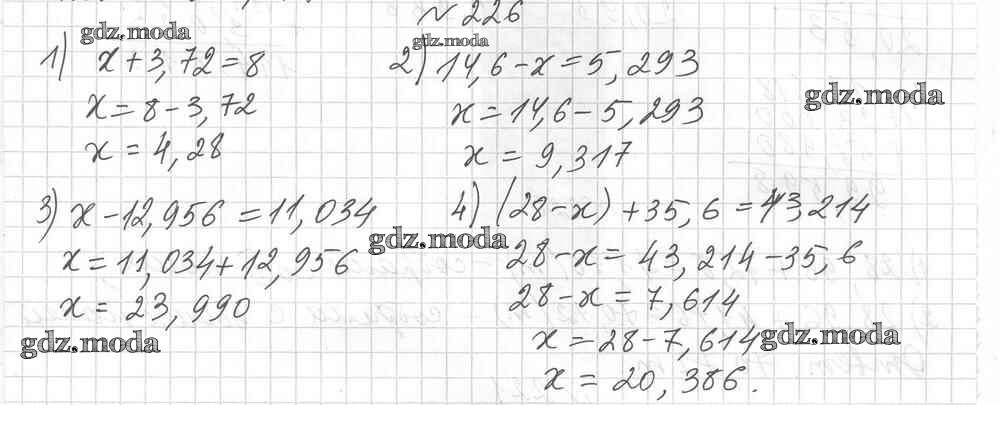 № 226
gdz.moda
1) x + 3,72 = 8
x = 8 - 3,72
x = 4,28
gdz.moda
2) 14,6 - x = 5,293
x = 14,6 - 5,293
x = 9,317
gdz.moda
3) x - 12,956 = 11,034
x = 11,034 + 12,956
x = 23,990
gdz.moda
gdz.moda
4) (28 - x) + 35,6 = 43,214
28 - x = 43,214 - 35,6
28 - x = 7,614
x = 28 - 7,614
gdz.moda
x = 20,386.